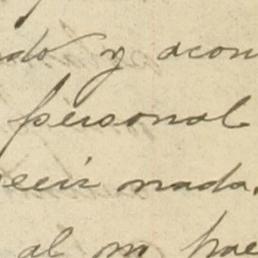 do y acon
personal
ecir nada.
al m hac